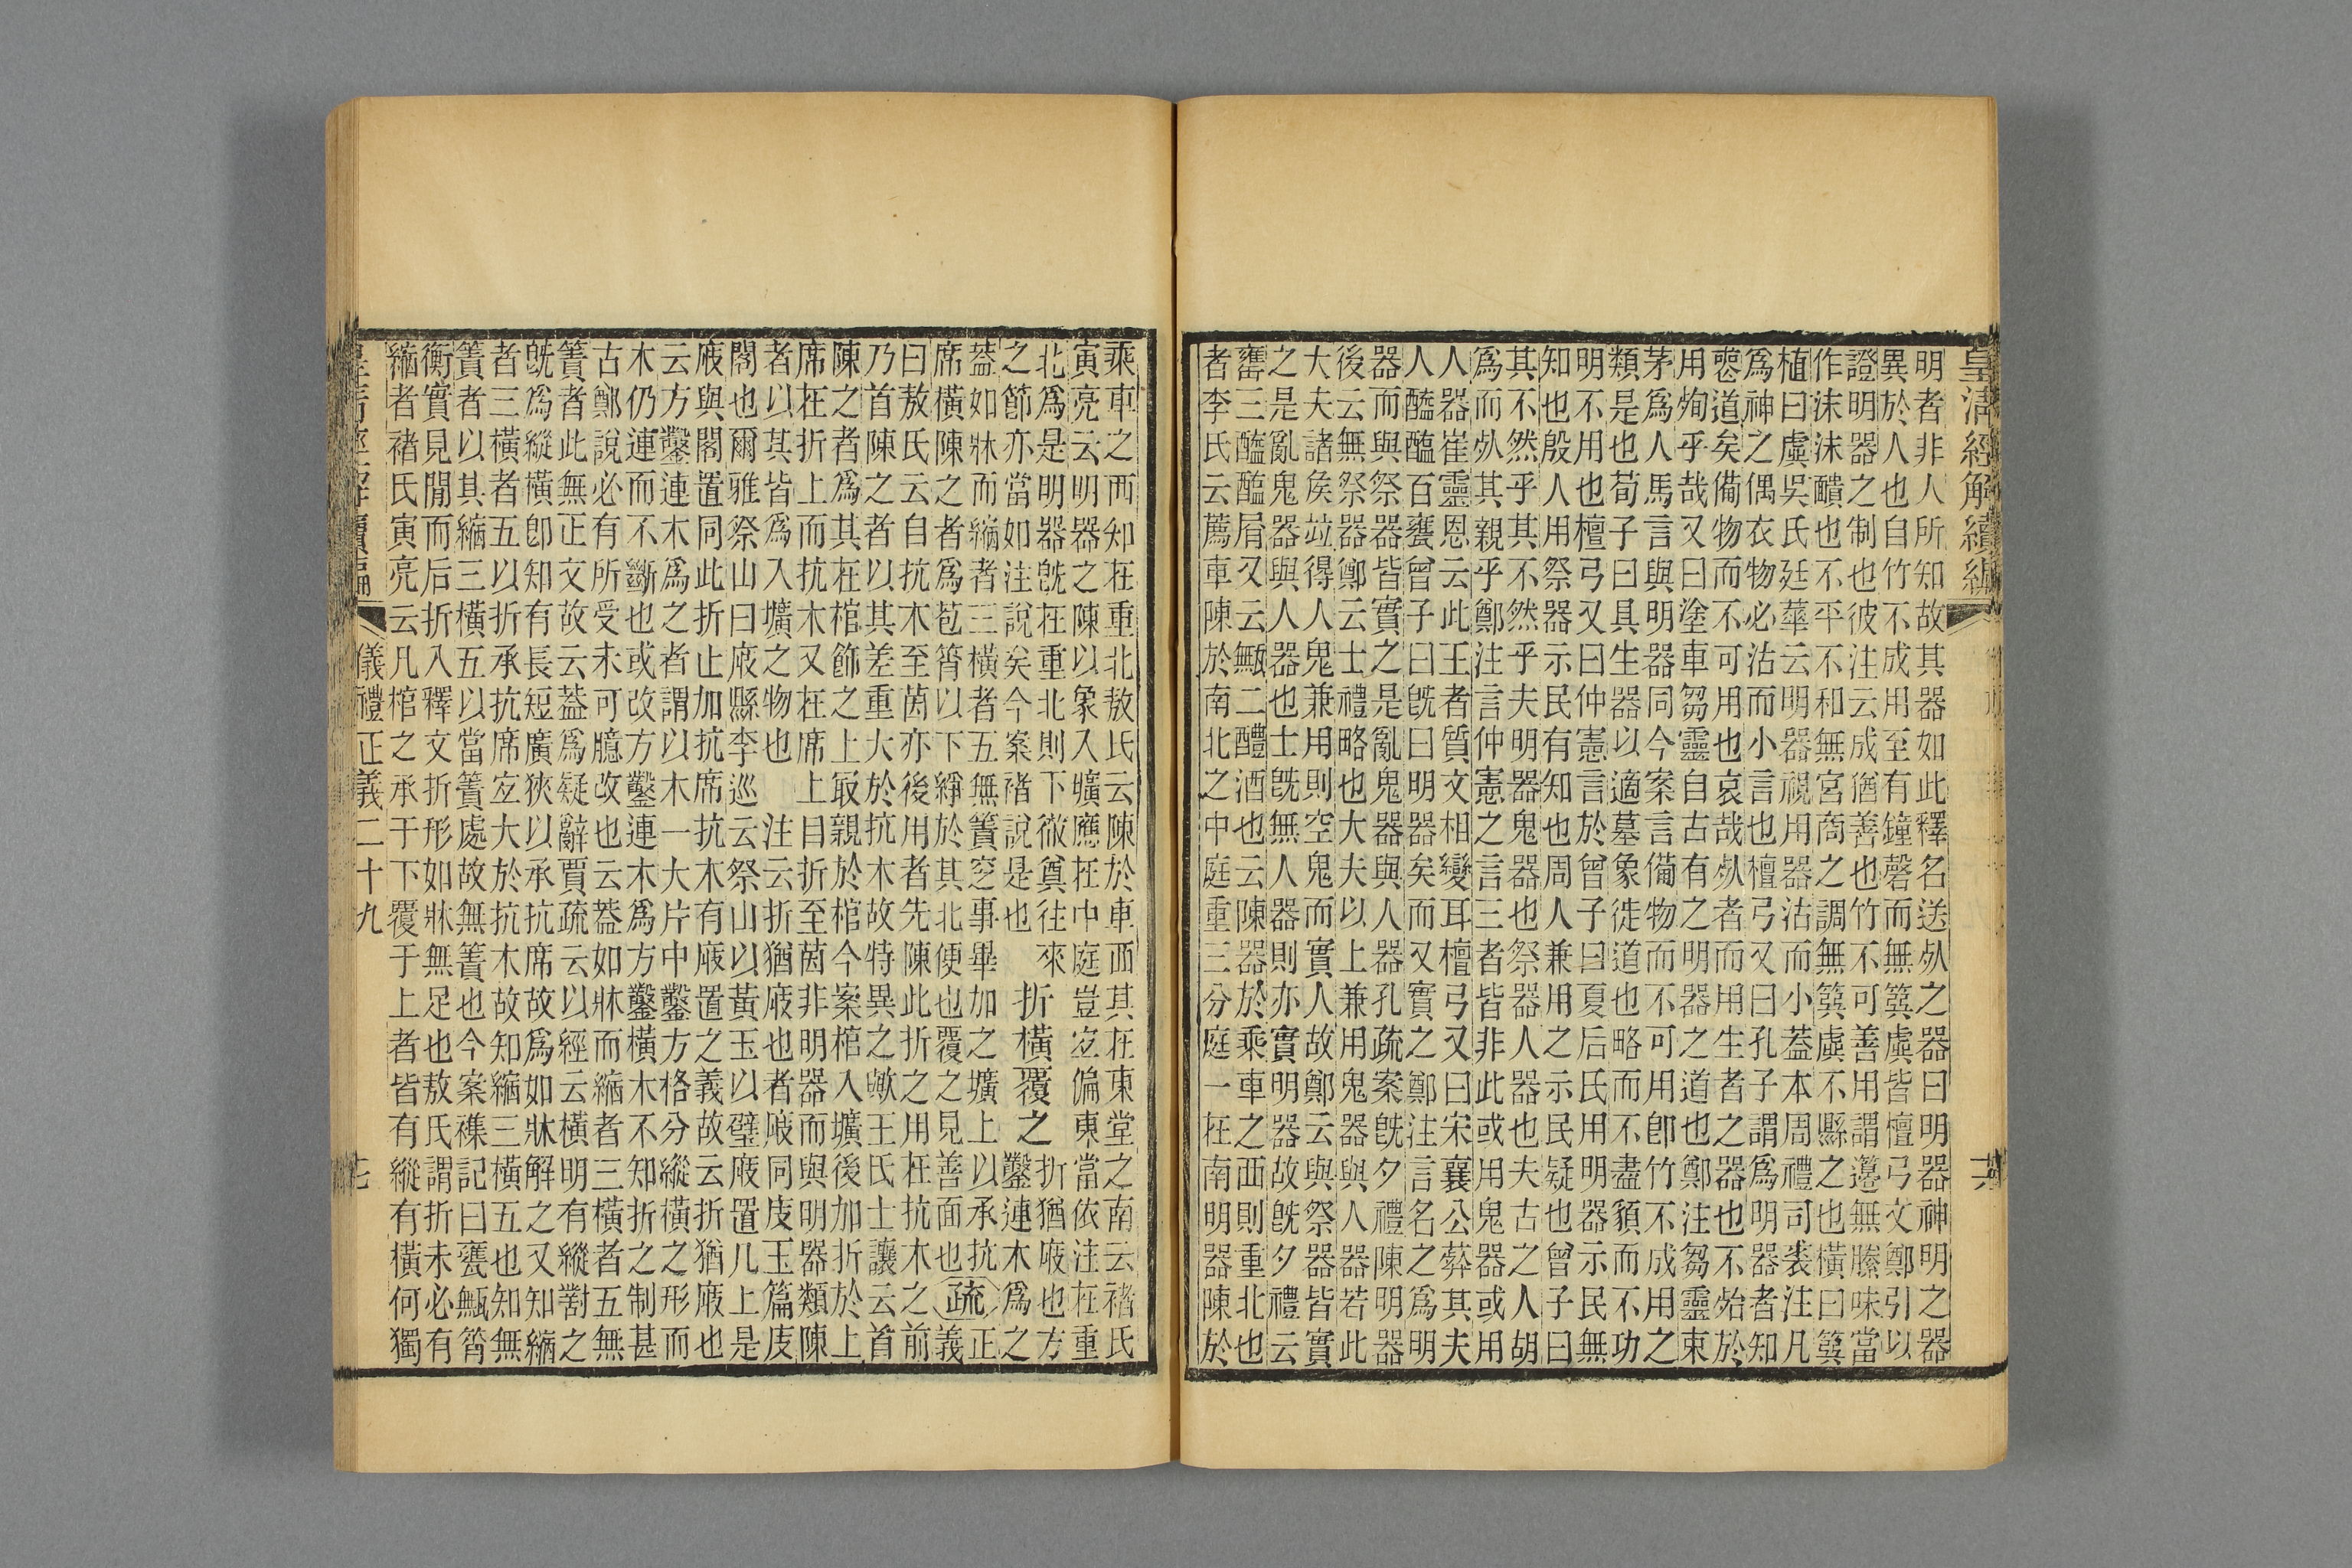 皇清經解續編
明者非人所知故其器如此釋名送死之器曰明器神明之器
異於人也自竹不成用至有鐘磬而無簨虡皆檀弓文鄭引以
證明器之制也彼注云成猶善也竹不可善用謂邊無縢味當
作沫沫靧也不平不和無宮商之調無簨虡不縣之也橫曰簨
植曰虡吳氏廷華云明器視用器沽而小蓋本周禮司裘注凡
爲神之偶衣物必沽而小言也檀弓又曰孔子謂爲明器者知
喪道矣備物而不可用也哀哉死者而用生者之器也不殆於
用殉乎哉又曰塗車芻靈自古有之明器之道也鄭注芻靈束
茅爲人馬言與明器同今案言備物而不可用卽竹不成用之
類是也荀子曰具生器以適墓象徙道也略而不盡貌而不功
明不用也檀弓又曰仲憲言於曾子曰夏后氏用明器示民無
知也殷人用祭器示民有知也周人兼用之示民疑也曾子曰
其不然乎其不然乎夫明器鬼器也祭器人器也夫古之人胡
爲而死其親乎鄭注言仲憲之言三者皆非此或用鬼器或用
人器崔靈恩云此王者質文相變耳檀弓又曰宋襄公葬其夫
人醯醢百甕曾子曰既曰明器矣而又實之鄭注言名之爲明
器而與祭器皆實之是亂鬼器與人器孔疏案既夕禮陳明器
後云無祭器鄭云士禮略也大夫以上兼用鬼器與人器若此
大夫諸矦竝得人鬼兼用則空鬼而實人故鄭云與祭器皆實
之是亂鬼器與人器也士既無人器則亦實明器故既夕禮云
罋三醯醢屑又云甒二醴酒也云陳器於乘車之西則重北也
者李氏云薦車陳於南北之中庭重三分庭一在南明器陳於
乘車之西知在重北敖氏云陳於車西其在東堂之南云褚氏
寅亮云明器之陳以象入壙應在中庭豈宐偏東當依注在重
北爲是明器旣在重北則下徹奠往來 折橫覆之 折猶庪也方
之節亦當如注說矣今案褚說是也 鑿連木爲之
蓋如牀而縮者三橫者五無簀窆事畢加之壙上以承抗 疏正
席橫陳之者爲苞筲以下綪於其北便也覆之見善面也 義
曰敖氏云自抗木至茵亦後用者先陳此折之用在抗木之前
乃首陳之者以其差重大於抗木故特異之歟王氏士讓云首
陳之者爲其在棺飾之上冣親於棺今案棺入壙後加折於上
席在折上而抗木又在席上目折至茵非明器而與明器類陳
者以其皆爲入壙之物也 注云折猶庪也者庪同庋玉篇庋
閣也爾雅祭山曰庪縣李巡云祭山以黃玉以璧庪置几上是
庪與閣置同此折止加抗席抗木有庪置之義故云折猶庪也
云方鑿連木爲之者謂以木一大片中鑿方格分縱橫之形而
木仍連而不斷也或改方鑿連木爲方鑿橫木不知折之制甚
古鄭說必有所受未可臆改也云蓋如牀而縮者三橫者五無
簀者此無正文故云蓋爲疑辭賈疏云以經云橫明有縱對之
旣爲縱橫卽知有長短廣狹以承抗席故爲如牀解之又知縮
者三橫者五以折承抗席宐大於抗木故知縮三橫五也知無
簀者以其縮三橫五以當簀處故無簀也今案襍記曰甕甒筲
衡實見閒而后折入釋文折形如牀無足也敖氏謂折未必有
縮者褚氏寅亮云凡棺之承于下覆于上者皆有縱有橫何獨
儀禮正義二十九